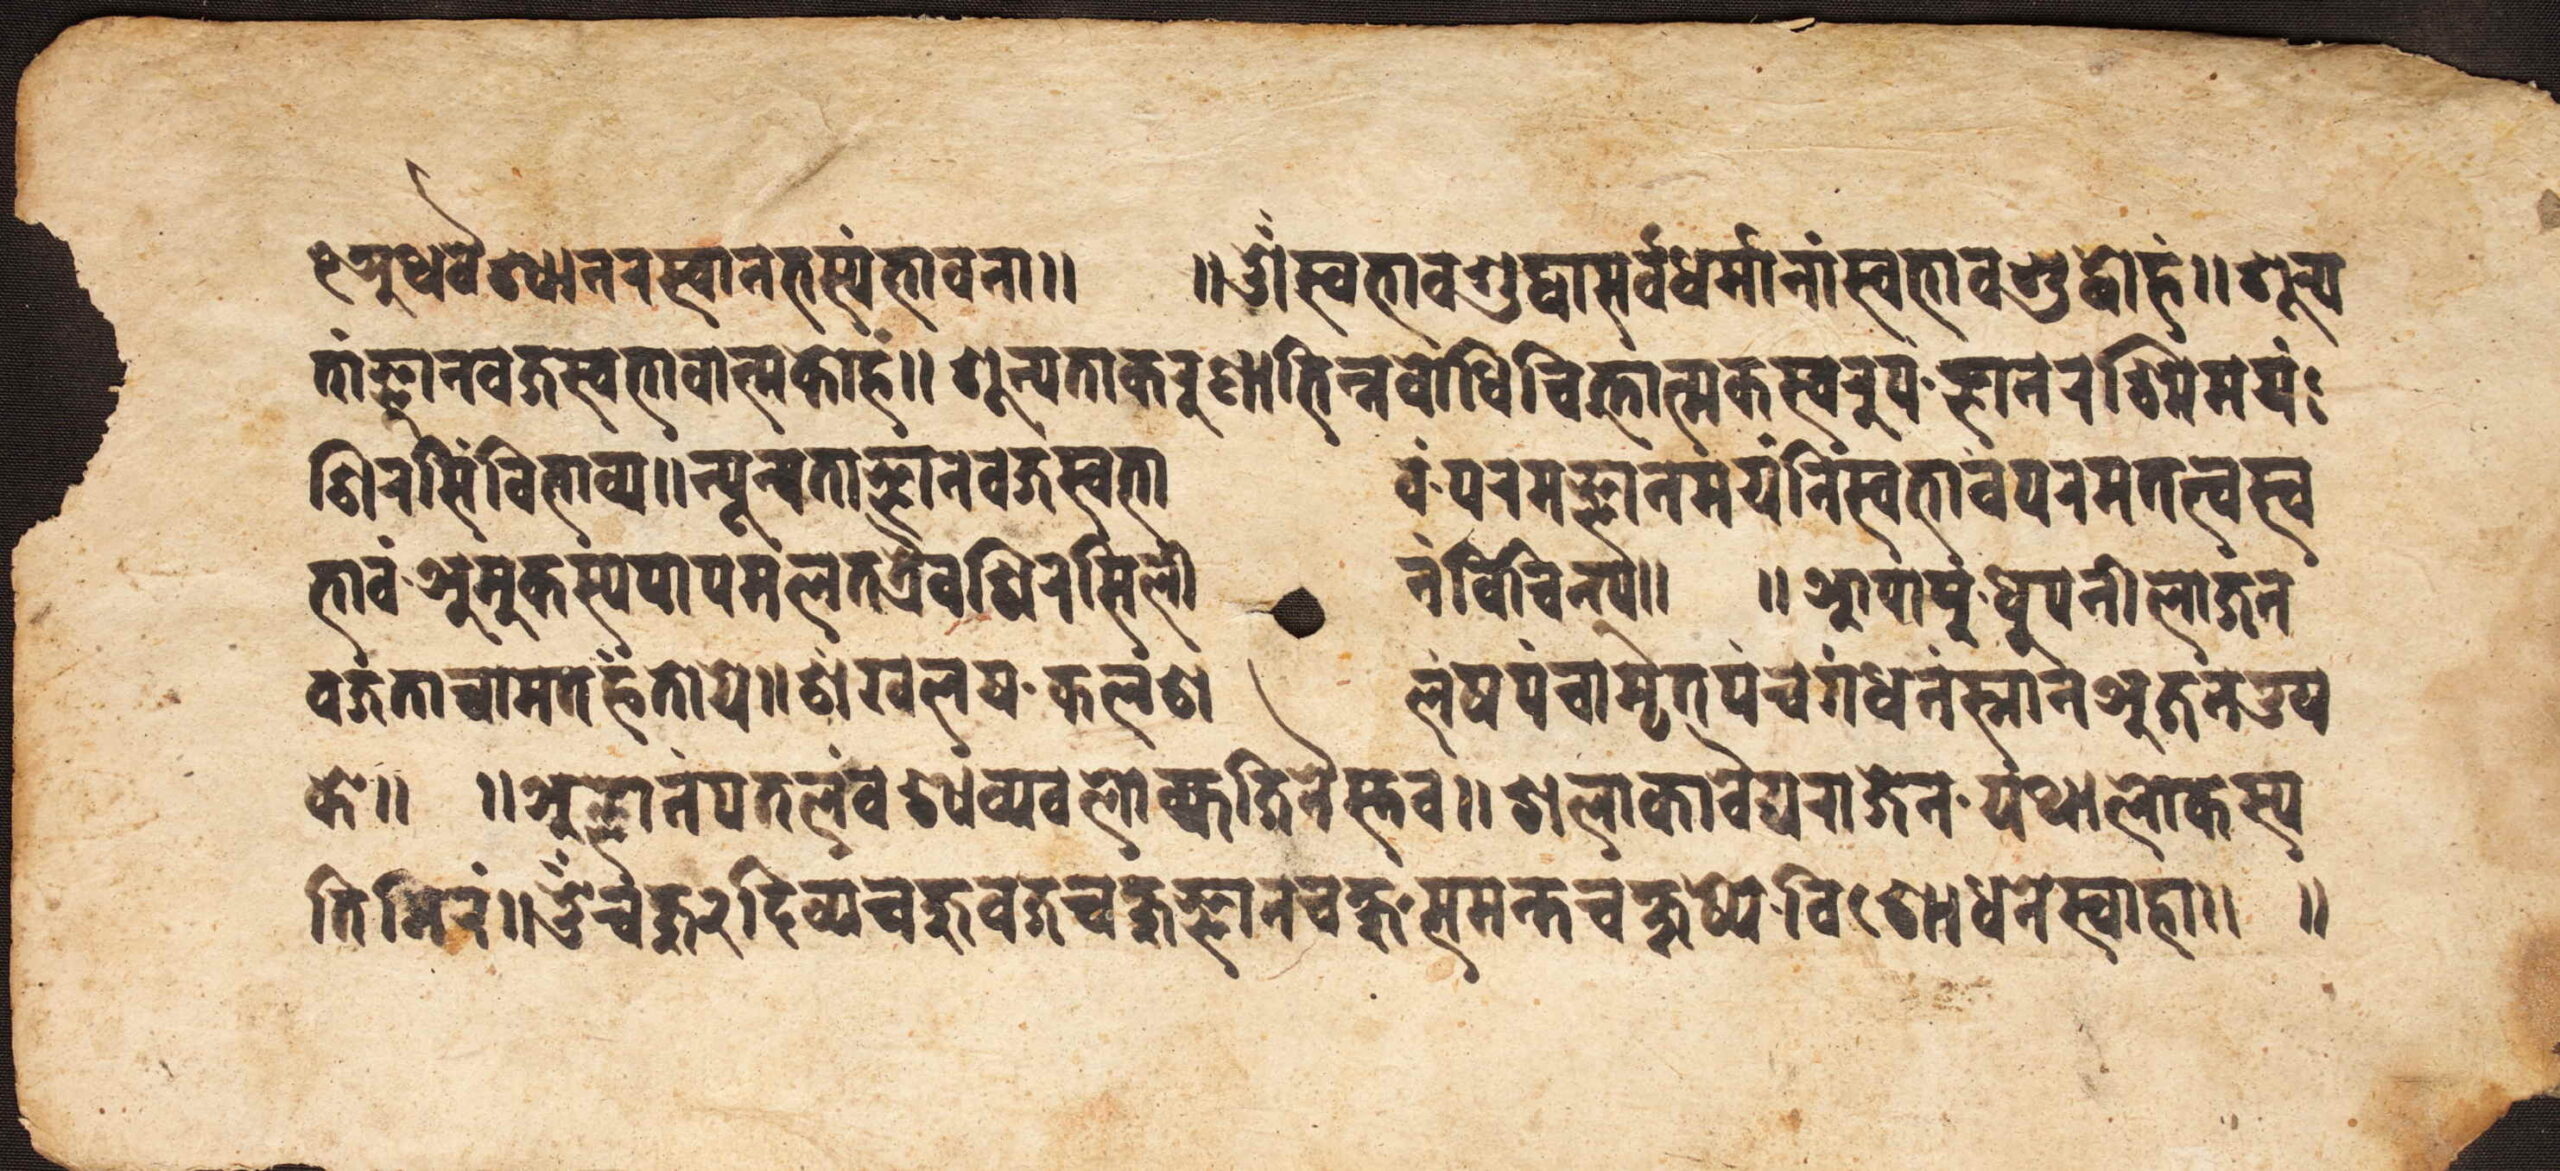 १अथवैश्वानरस्वानतस्यंभावना॥ ॥ओंस्वभावशुद्धासर्वधर्मानांस्वभावशुद्धोहं॥शून्य
तांज्ञानवज्रस्वभावात्मकोहं॥शून्यताकरुणाभिन्नवोधिचित्तात्मकस्वरुपं·ज्ञानरश्मिमयंः
शिरसिंविभाव्य॥न्यून्यताज्ञानवज्रस्वभा वं·परमज्ञानमयंनिंस्वभावंपरमतत्वस्व
भावं·अमुकस्यपापमलतत्रैवशिरसिली नंविचिन्त्य॥ ॥आपायुं·धुपनीलाजंन
वज्रंताचामतहंतोये॥शंखलष·कलंश लंषपंचामृतपंचगंधनंस्नानअजनउय
के॥ ॥अज्ञानंपतलंवशंव्यवलोक्यजिनैस्तव॥शलाकावैद्यराजेन·यथालोकस्य
तिमिरं॥ओंचंक्षु२दिव्यचक्षुवज्रचंक्षुज्ञानचक्षु·समन्तचक्षुष्ये·विशोधनेस्वाहा॥ ॥